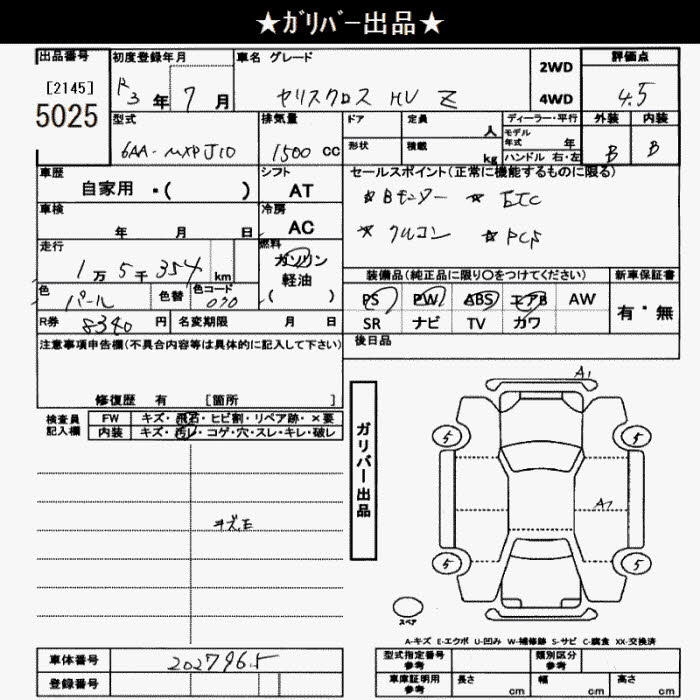 ★ｶﾞﾘﾊﾞｰ出品★
出品番号 初度登録年月 車名 グレード 評価点
[2145] R3年 7月 ヤリスクロス HV Z 2WD 4WD 4.5
5025
型式 排気量 ドア 定員 人 ディーラー・平行 外装 内装
6AA-MXPJ10 1500 cc 形状 積載 kg モデル年式 年 B B
ハンドル 右・左
車歴 シフト セールスポイント(正常に機能するものに限る)
自家用 ・( ) AT ☆Bモニター ☆ETC
車検 冷房
年 月 日 AC ☆クルコン ☆PCS
走行 燃料
1万5千354km ガソリン
軽油 装備品(純正品に限り○をつけてください) 新車保証書
色 パール 色替 色コード 070 ( ) PS PW ABS エアB AW 有・無
R券 8340円 名変期限 月 日 SR ナビ TV カワ
注意事項申告欄(不具合内容等は具体的に記入して下さい) 後日品
修復歴 有 [箇所 ]
検査員記入欄 FW キズ・飛石・ヒビ割・リペア跡・×要
内装 キズ・汚レ・コゲ・穴・スレ・キレ・破レ
ガリバー出品
A1
5 5
キズE
5 5
スペア
A-キズ E-エクボ U-凹み W-補修跡 S-サビ C-腐食 XX-交換済
車体番号 2027965 型式指定番号 参考 類別区分 参考
登録番号 車庫証明用 参考 長さ cm 幅 cm 高さ cm